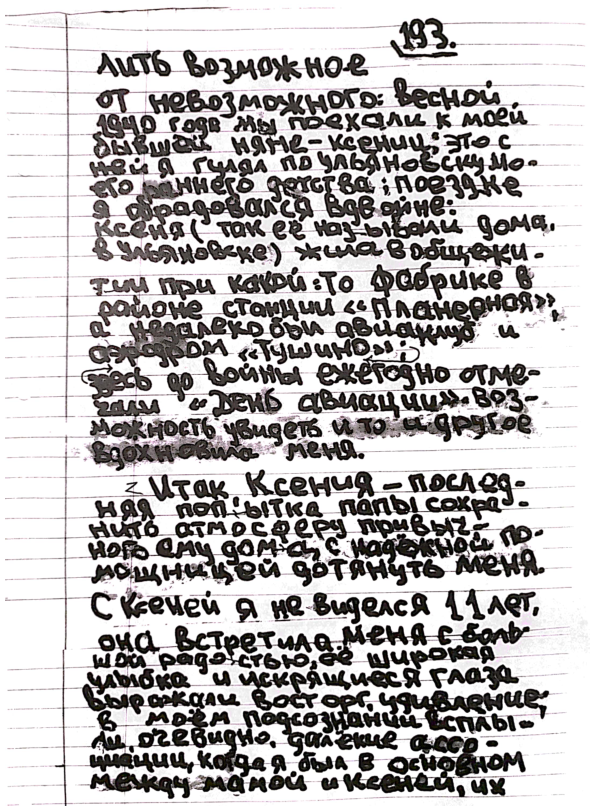 193.
лить возможное
от невозможного: весной
1940 года мы поехали к моей
бывшей няне-ксении; это с
ней я гулял по ульяновску мо-
его раннего детства; поездке
я обрадовался вдвойне:
Ксеня (так её называли дома,
в Ульяновске) жила в общежи-
тии при какой-то фабрике в
районе станции «Планерная»,
а недалеко был авиаклуб и
аэродром «Тушино»;
здесь до войны ежегодно отме-
чали «День авиации». Воз-
можность увидеть и то и другое
вдохновила меня.
Итак Ксения – послед-
няя попытка папы сохра-
нить атмосферу привыч-
ного ему дома, с надёжной по-
мощницей дотянуть меня.
С Ксеней я не виделся 11 лет,
она встретила меня с боль-
шой радостью, её широкая
улыбка и искрящиеся глаза
выражали восторг, удивление;
в моём подсознании всплы-
ли, очевидно, далёкие ассо-
циации, когда я был в основном
между мамой и Ксеней, их